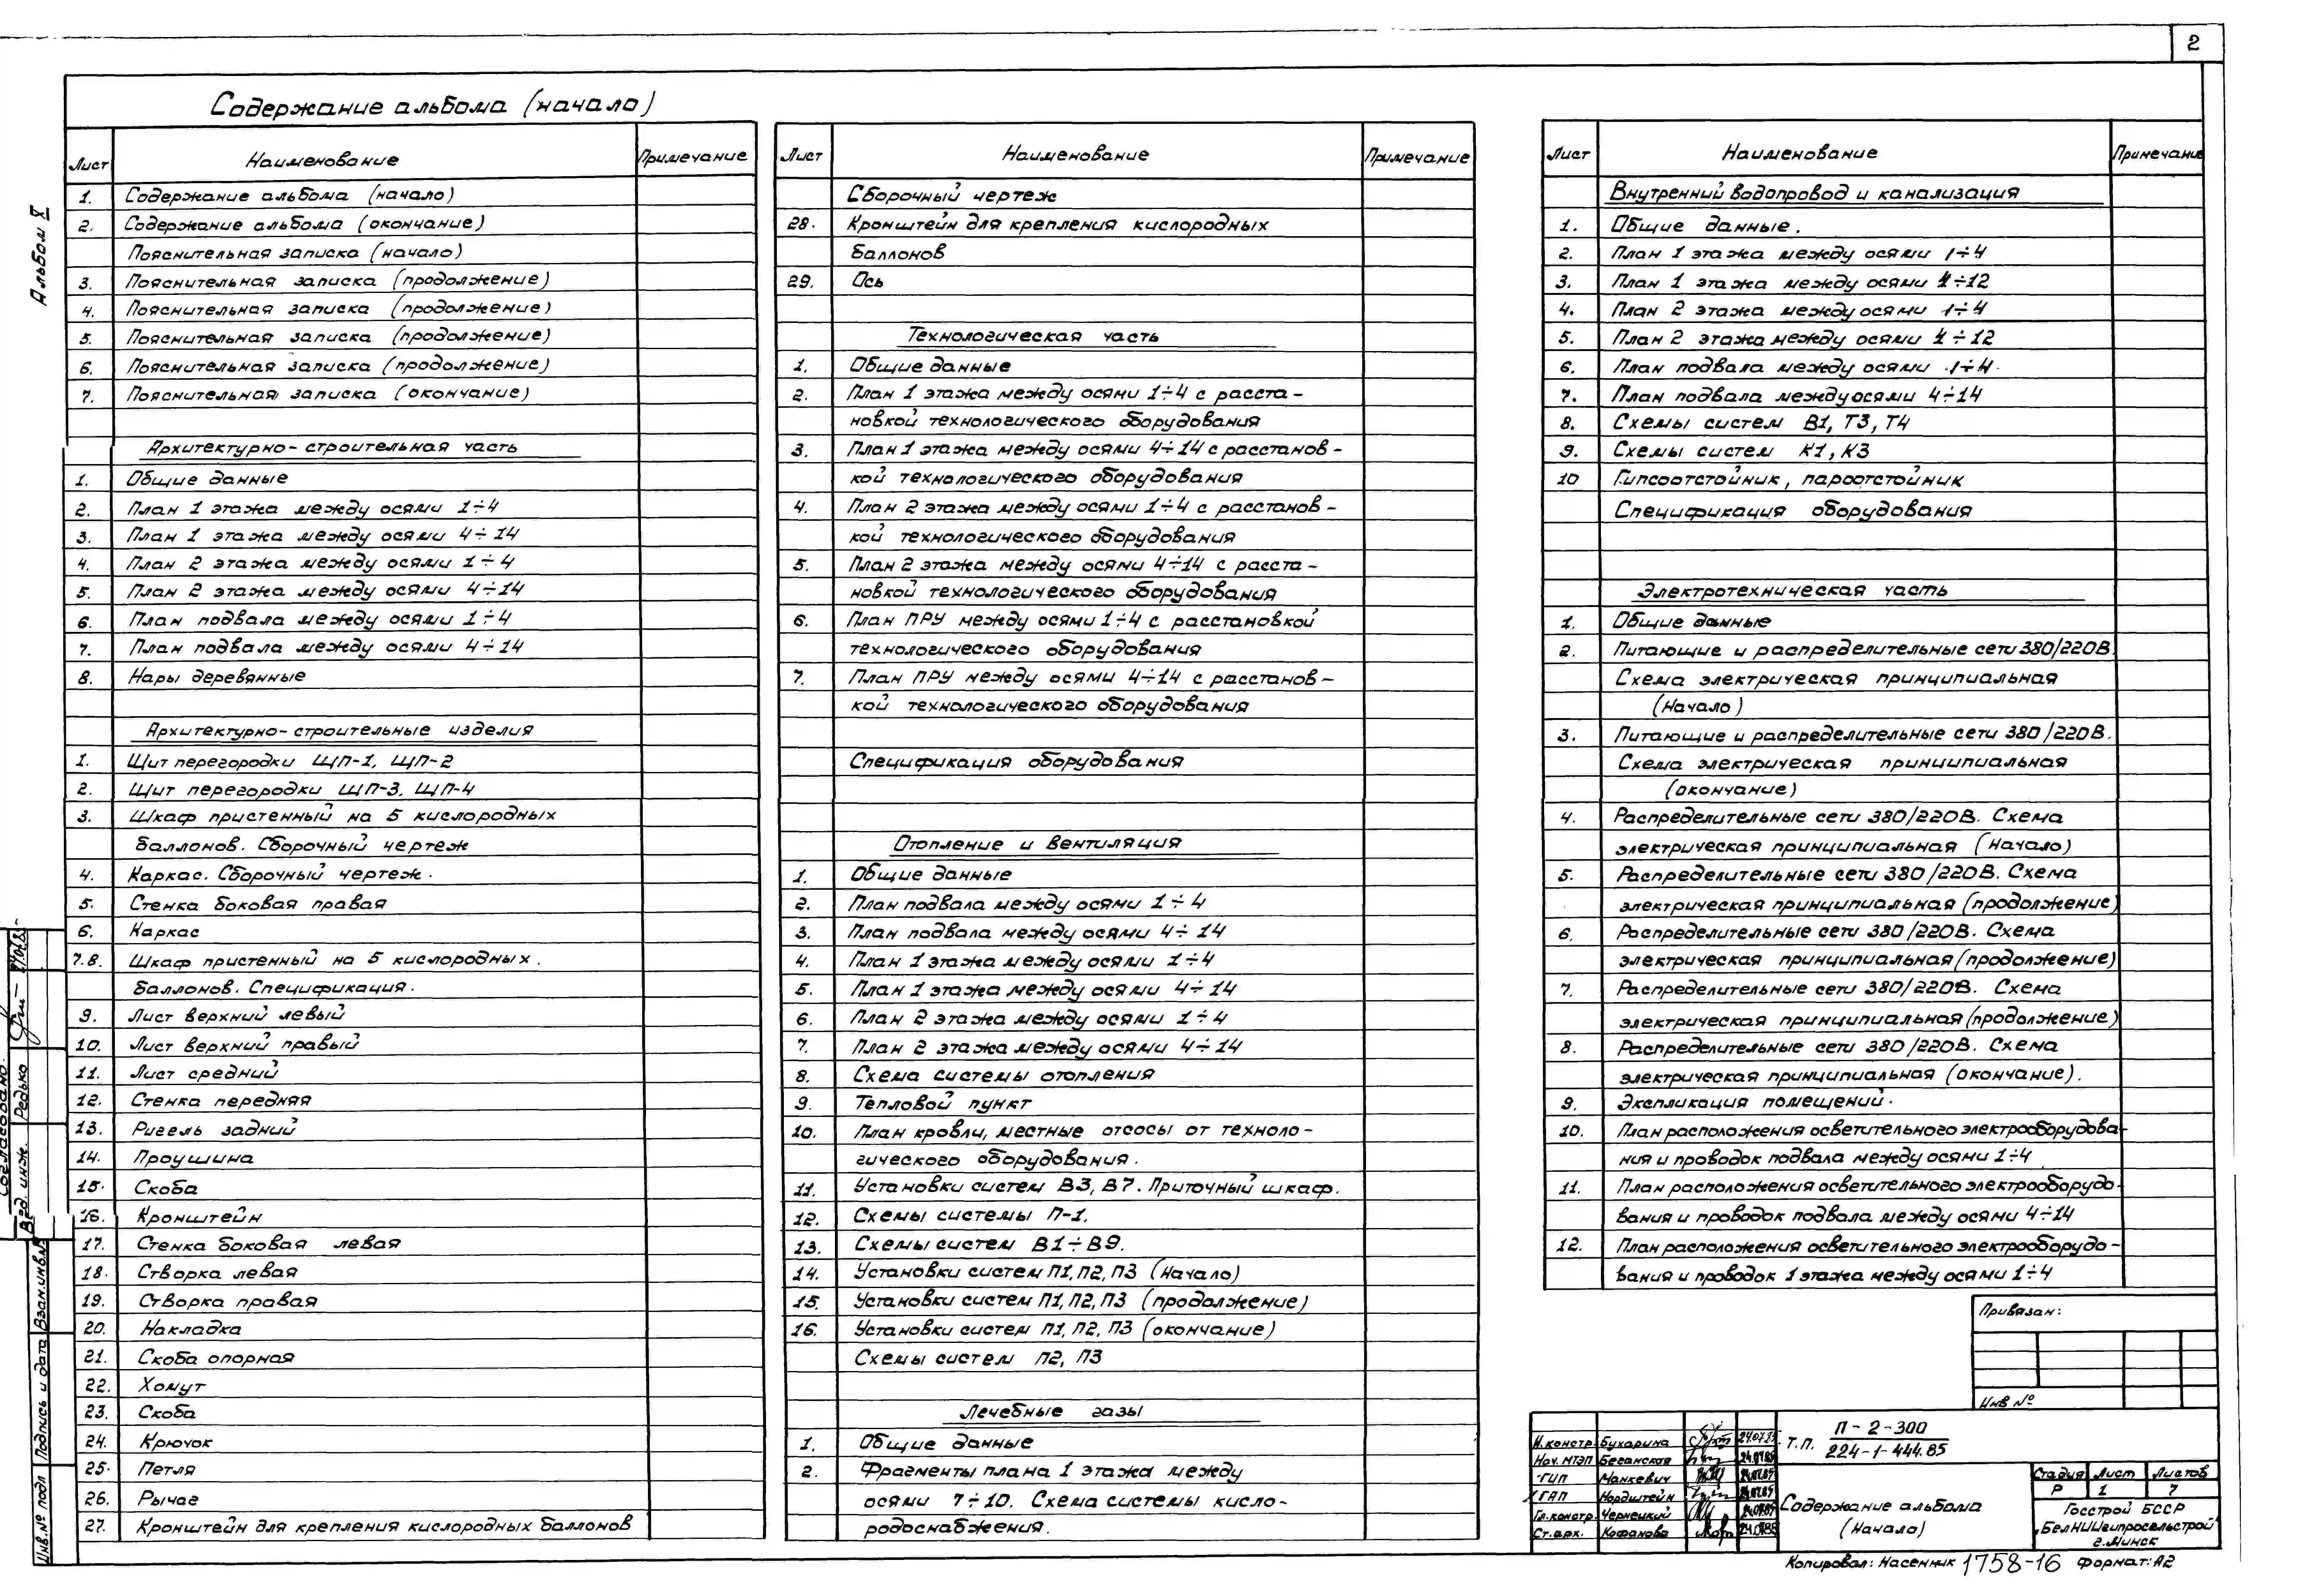 2
Содержание альбома (начало)
Альбом X
Лист Наименование Примечание
1. Содержание альбома (начало)
2. Содержание альбома (окончание)
Пояснительная записка (начало)
3. Пояснительная записка (продолжение)
4. Пояснительная записка (продолжение)
5. Пояснительная записка (продолжение)
6. Пояснительная записка (продолжение)
7. Пояснительная записка (окончание)
Архитектурно-строительная часть
1. Общие данные
2. План 1 этажа между осями 1÷4
3. План 1 этажа между осями 4÷14
4. План 2 этажа между осями 1÷4
5. План 2 этажа между осями 4÷14
6. План подвала между осями 1÷4
7. План подвала между осями 4÷14
8. Нары деревянные
Архитектурно-строительные изделия
1. Щит перегородки ЩП-1, ЩП-2
2. Щит перегородки ЩП-3, ЩП-4
3. Шкаф пристенный на 5 кислородных
баллонов. Сборочный чертеж
4. Каркас. Сборочный чертеж.
5. Стенка боковая правая
6. Каркас
7.8. Шкаф пристенный на 5 кислородных.
баллонов. Спецификация.
9. Лист верхний левый
10. Лист верхний правый
11. Лист средний
12. Стенка передняя
13. Ригель задний
14. Проушина
15. Скоба
16. Кронштейн
17. Стенка боковая левая
18. Створка левая
19. Створка правая
20. Накладка
21. Скоба опорная
22. Хомут
23. Скоба
24. Крючок
25. Петля
26. Рычаг
27. Кронштейн для крепления кислородных баллонов
Лист Наименование Примечание
Сборочный чертеж
28. Кронштейн для крепления кислородных
баллонов
29. Ось
Технологическая часть
1. Общие данные
2. План 1 этажа между осями 1÷4 с расста-
новкой технологического оборудования
3. План 1 этажа между осями 4÷14 с расстанов-
кой технологического оборудования
4. План 2 этажа между осями 1÷4 с расстанов-
кой технологического оборудования
5. План 2 этажа между осями 4÷14 с расста-
новкой технологического оборудования
6. План ПРУ между осями 1÷4 с расстановкой
технологического оборудования
7. План ПРУ между осями 4÷14 с расстанов-
кой технологического оборудования
Спецификация оборудования
Отопление и вентиляция
1. Общие данные
2. План подвала между осями 1÷4
3. План подвала между осями 4÷14
4. План 1 этажа между осями 1÷4
5. План 1 этажа между осями 4÷14
6. План 2 этажа между осями 1÷4
7. План 2 этажа между осями 4÷14
8. Схема системы отопления
9. Тепловой пункт
10. План кровли, местные отсосы от техноло-
гического оборудования.
11. Установки систем В3, В7. Приточный шкаф.
12. Схемы системы П-1.
13. Схемы систем В1÷В9.
14. Установки систем П1, П2, П3 (Начало)
15. Установки систем П1, П2, П3 (продолжение)
16. Установки систем П1, П2, П3 (окончание)
Схемы систем П2, П3
Лечебные газы
1. Общие данные
2. Фрагменты плана 1 этажа между
осями 7÷10. Схема системы кисло-
родоснабжения.
Лист Наименование Примечание
Внутренний водопровод и канализация
1. Общие данные.
2. План 1 этажа между осями 1÷4
3. План 1 этажа между осями 4÷12
4. План 2 этажа между осями 1÷4
5. План 2 этажа между осями 4÷12
6. План подвала между осями 1÷4
7. План подвала между осями 4÷14
8. Схемы систем В1, Т3, Т4
9. Схемы систем К1, К3
10 Гипсоотстойник, пароотстойник
Спецификация оборудования
Электротехническая часть
1. Общие данные
2. Питающие и распределительные сети 380/220В.
Схема электрическая принципиальная
(Начало)
3. Питающие и распределительные сети 380/220В.
Схема электрическая принципиальная
(окончание)
4. Распределительные сети 380/220В. Схема
электрическая принципиальная (Начало)
5. Распределительные сети 380/220В. Схема
электрическая принципиальная (продолжение)
6. Распределительные сети 380/220В. Схема
электрическая принципиальная (продолжение)
7. Распределительные сети 380/220В. Схема
электрическая принципиальная (продолжение)
8. Распределительные сети 380/220В. Схема
электрическая принципиальная (окончание).
9. Экспликация помещений.
10. План расположения осветительного электрооборудова-
ния и проводок подвала между осями 1÷4
11. План расположения осветительного электрооборудо-
вания и проводок подвала между осями 4÷14
12. План расположения осветительного электрооборудо-
вания и проводок 1 этажа между осями 1÷4
Привязан:
Инв №
Н.констр. Бухарина 24.07.85
Нач. МТЭП Беганская 24.07.85
ГИП Манкевич 24.07.85
ГАП Нордштейн 24.07.85
Гл.констр. Чернецкий 24.07.85
Ст.арх. Кофанова 24.07.85
Т.П. П-2-300
224-1-444.85
Содержание альбома
(Начало)
Стадия Лист Листов
Р 1 7
Госстрой БССР
БелНИИгипросельстрой
г.Минск
Копировал: Насенник 1758-16 Формат: А2
Согласовано:
Вед. инж. Редько
Инв.№ подл Подпись и дата Взам.инв.№